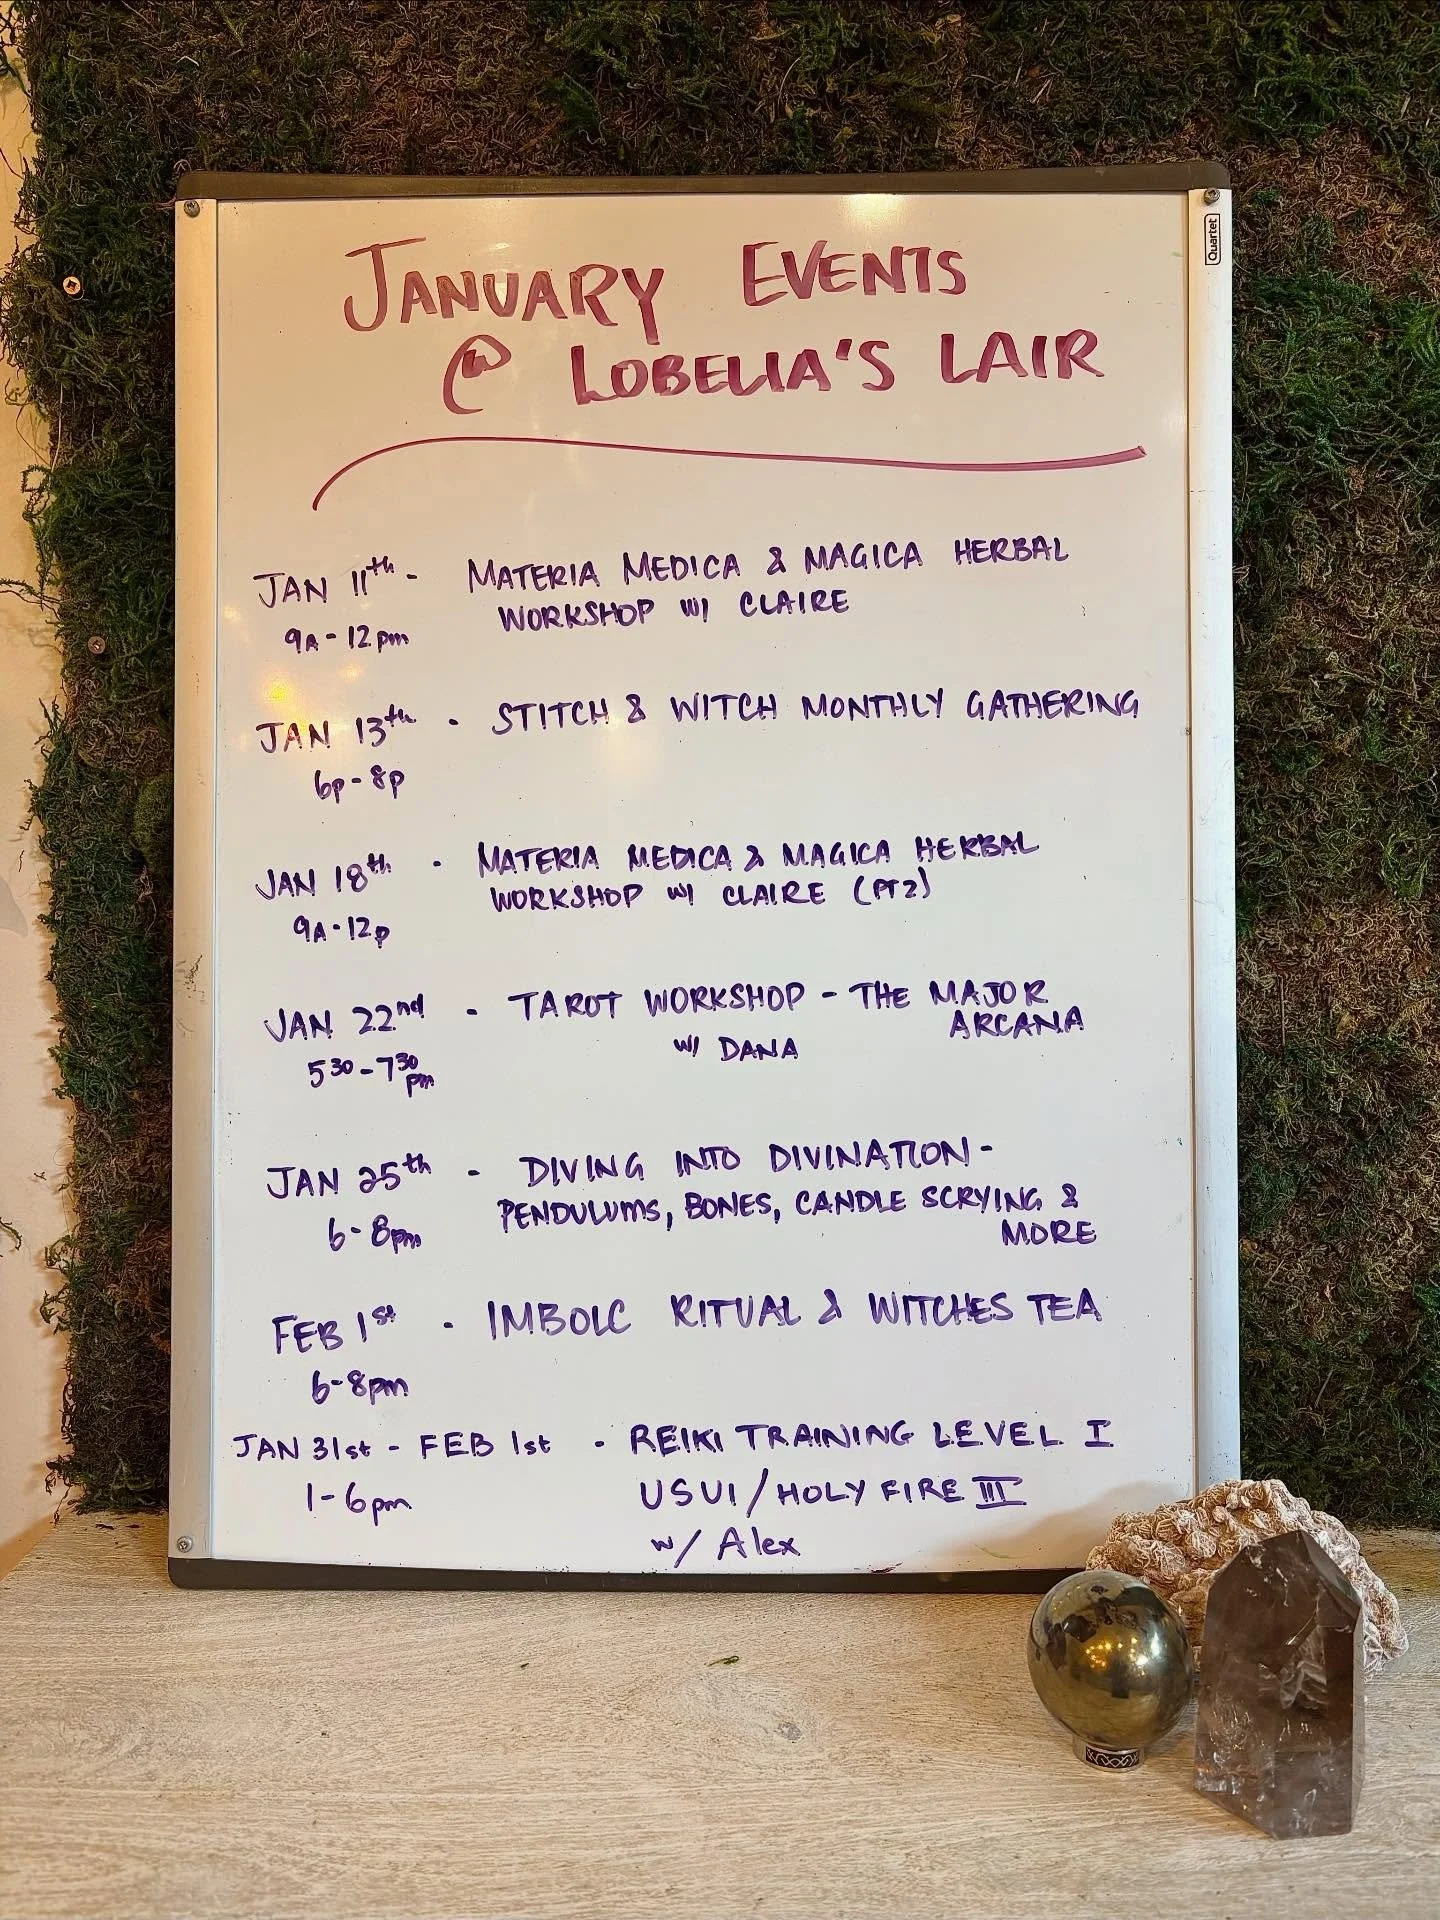 Quartet
JANUARY EVENTS
@ LOBELIA'S LAIR
JAN 11th - MATERIA MEDICA & MAGICA HERBAL
9A - 12pm WORKSHOP W/ CLAIRE
JAN 13th - STITCH & WITCH MONTHLY GATHERING
6p - 8p
JAN 18th - MATERIA MEDICA & MAGICA HERBAL
9A - 12p WORKSHOP W/ CLAIRE (PT 2)
JAN 22nd - TAROT WORKSHOP - THE MAJOR
ARCANA
530 - 730 pm W/ DANA
JAN 25th - DIVING INTO DIVINATION -
6 - 8pm PENDULUMS, BONES, CANDLE SCRYING &
MORE
FEB 1st - IMBOLC RITUAL & WITCHES TEA
6-8pm
JAN 31st - FEB 1st - REIKI TRAINING LEVEL I
1-6pm USUI/HOLY FIRE III
w/ Alex